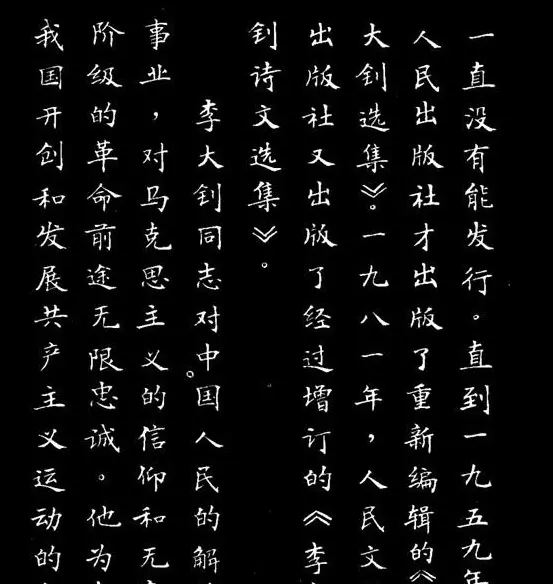 一直没有能发行。直到一九五九年
人民出版社才出版了重新编辑的《
大钊选集》。一九八一年，人民文
出版社又出版了经过增订的《李
钊诗文选集》。
李大钊同志对中国人民的解
事业，对马克思主义的信仰和无
阶级的革命前途无限忠诚。他为
我国开创和发展共产主义运动的